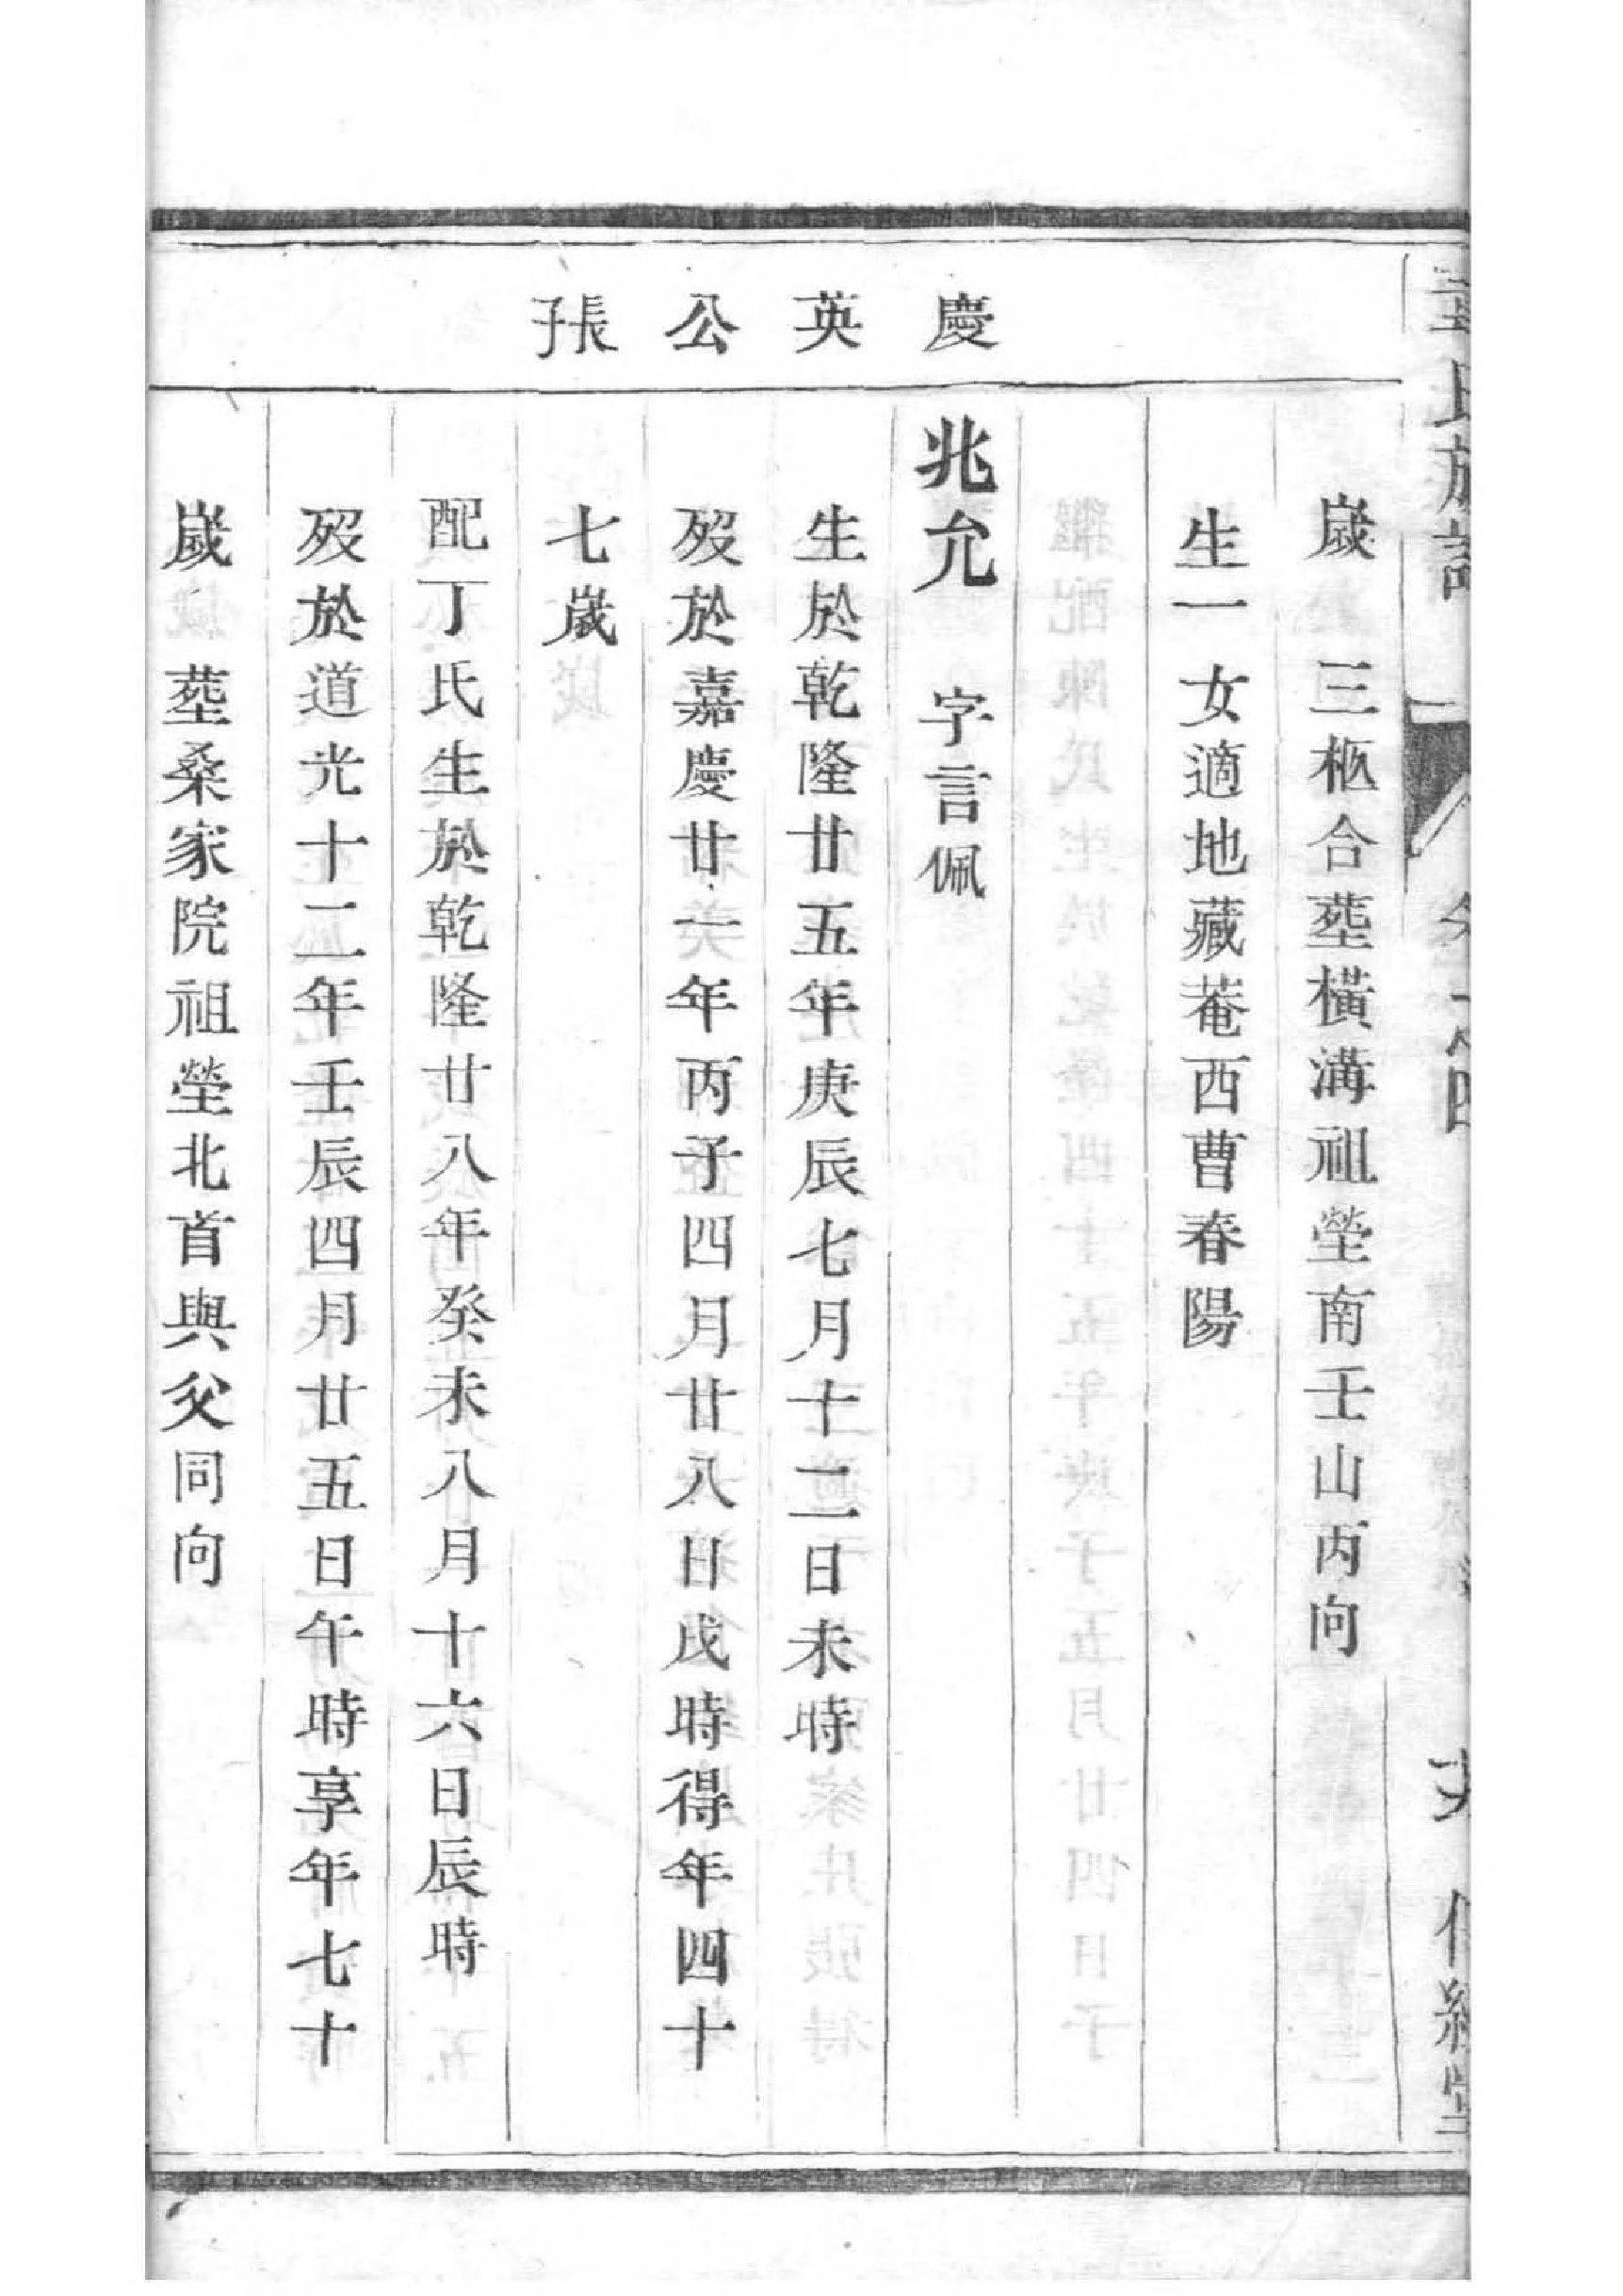 氏族譜 卷之四
慶英公長子
嵗 三柩合塟橫溝祖塋南壬山丙向
生一女適地藏菴西曹春陽
兆允 字言佩
生於乾隆廿五年庚辰七月十二日未時
歿於嘉慶廿一年丙子四月廿八日戌時得年四十
七嵗
配丁氏生於乾隆廿八年癸未八月十六日辰時
歿於道光十二年壬辰四月廿五日午時享年七十
嵗 塟桑家院祖塋北首與父同向